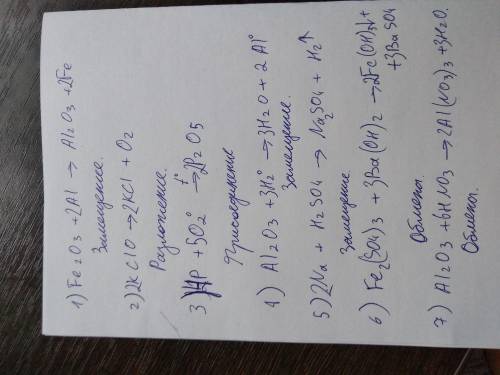 1) Fe2O3 + 2Al → Al2O3 + 2Fe
Замещение.
2) 2KClO → 2KCl + O2
Разложение.
3) 4P + 5O2⁰ t° → 2P2O5
Присоединение
4) Al2O3 + 3H2⁰ → 3H2O + 2Al⁰
Замещение.
5) 2Na + H2SO4 → Na2SO4 + H2↑
Замещение
6) Fe2(SO4)3 + 3Ba(OH)2 → 2Fe(OH)3↓ +
+ 3BaSO4
Обмена.
7) Al2O3 + 6HNO3 → 2Al(NO3)3 + 3H2O.
Обмена.